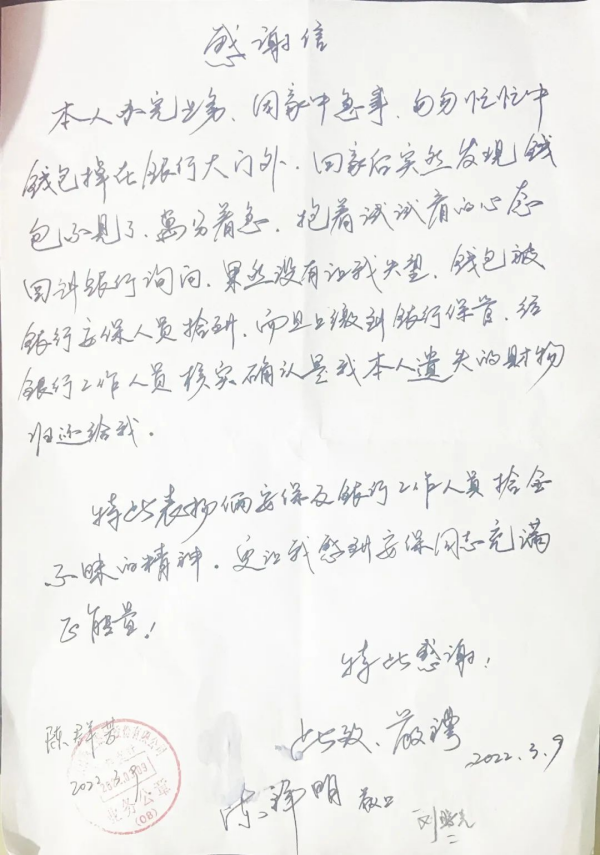 感谢信
本人办完业务，回家中急事，匆匆忙忙中
钱包掉在银行大门外，回家后突然发现钱
包不见了，万分着急，抱着试试看的心态
回到银行询问，果然没有让我失望，钱包被
银行安保人员拾到，而且上缴到银行保管，经
银行工作人员核实确认是我本人遗失的财物
归还给我。
特此表扬俩安保及银行工作人员拾金
不昧的精神。更让我感到安保同志充满
正能量！
特此感谢！
此致，敬礼
2022.3.9
陈群
业务公章
(08)
明 敬上
刘